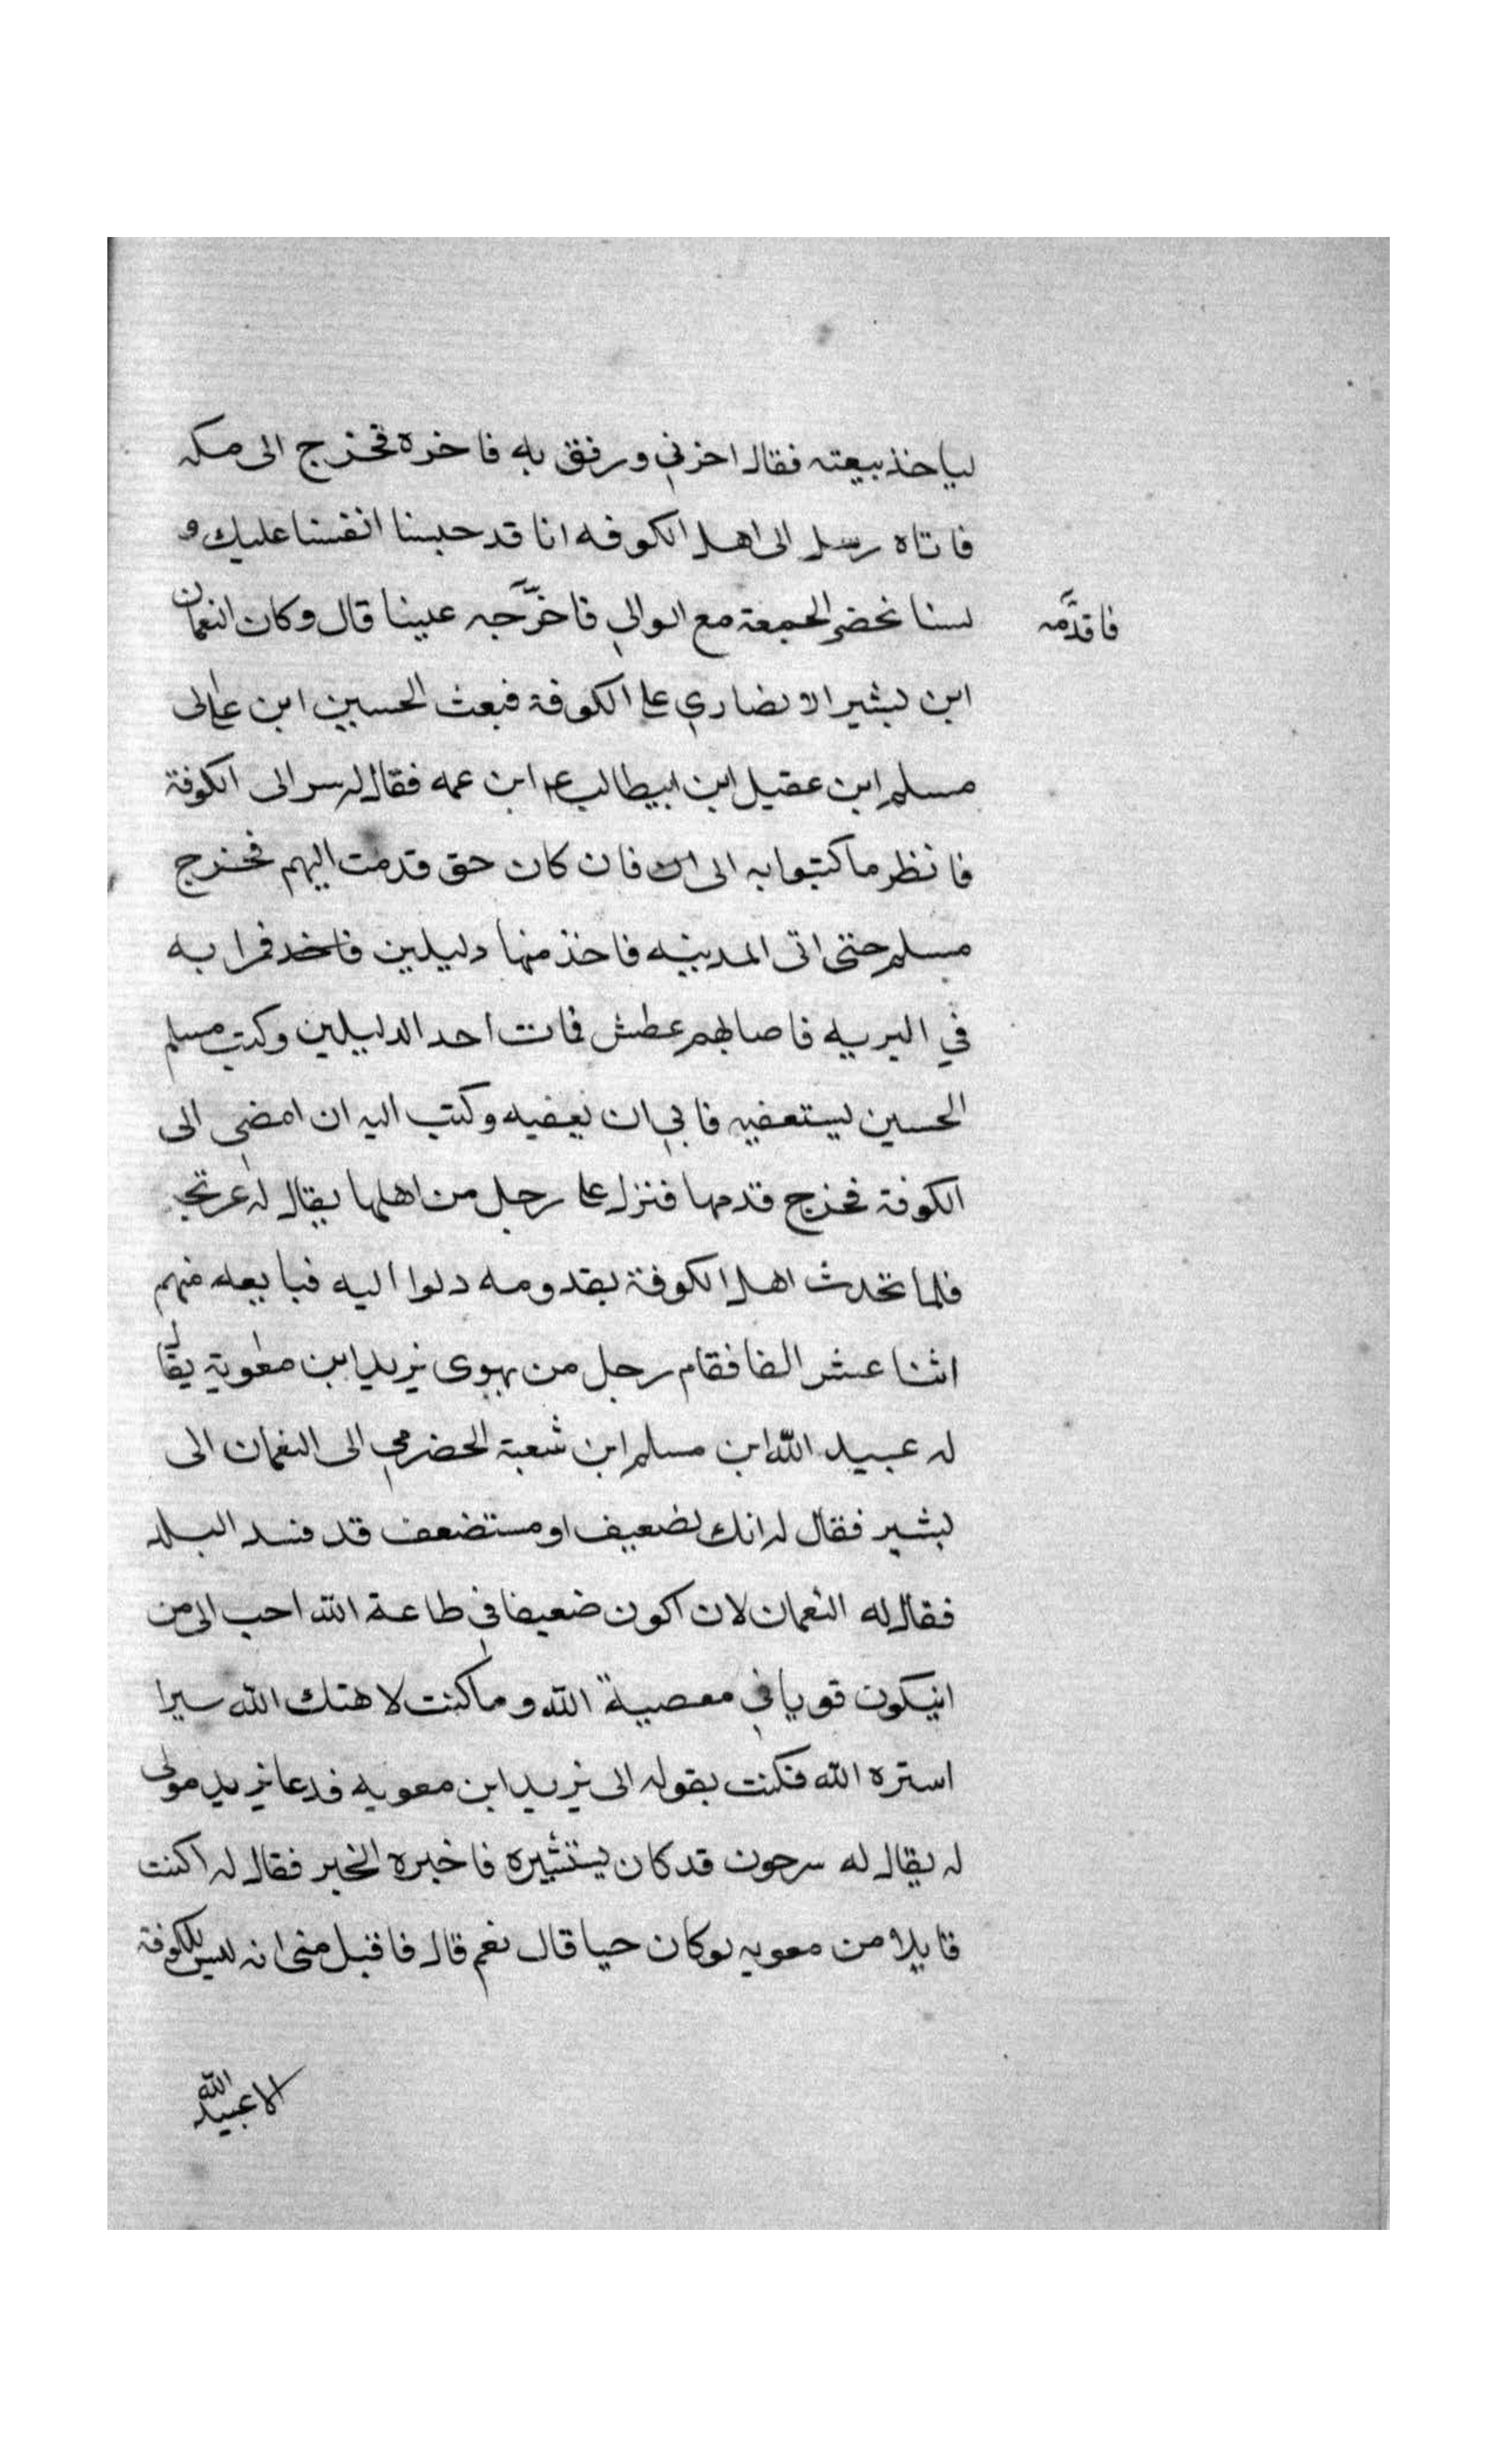 لياخذ بيعته فقال اخرني ورفق به فاخره فخرج الى مكه
فاتاه رسل الى اهل الكوفه انا قد حبسنا انفسنا عليك و
لسنا نحضر الجمعة مع الوالي فاخرجه علينا قال وكان النعمان
فاقدمه
ابن بشير الانصاري على الكوفة فبعث الحسين ابن علي الى
مسلم ابن عقيل ابن ابيطالب ابن عمه فقال له سر الى الكوفة
فانظر ما كتبوا به الى فان كان حق قدمت اليهم فخرج
مسلم حتى اتى المدينه فاخذ منها دليلين فمرا به
في البريه فاصابهم عطش فمات احد الدليلين وكتب مسلم
الحسين ليستعفيه فابي ان يعفيه وكتب اليه ان امضي الى
الكوفة فخرج قدمها فنزل على رجل من اهلها يقال له
فلما تحدث اهل الكوفة بقدومه دلوا اليه فبايعه منهم
اثنا عشر الفا فقام رجل من يهوى يزيد ابن معوية يقال
له عبيد الله ابن مسلم ابن شعبة الحضرمي الى النعمان الى
بشير فقال له انك لضعيف او مستضعف قد فسد البلد
فقال له النعمان لان اكون ضعيفا في طاعة الله احب الى من
انيكون قويا في معصية الله وما كنت لاهتك الله سيرا
استره الله فكنت بقوله الى يزيد ابن معويه فدعا يزيد مولى
له يقال له سرحون قد كان يستشيره فاخبره الخبر فقال له اكنت
قايلا من معويه لو كان حيا قال نعم قال فاقبل منى انه ليس للكوفة
الا عبيد الله